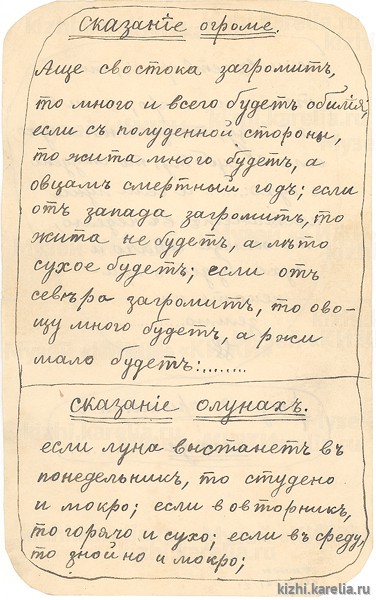 сказанiе огроме.
Аще свостока загромитъ,
то много и всего будетъ обилiя;
если съ полуденной стороны,
то жита много будетъ, а
овцамъ смертный годъ; если
отъ запада загромитъ, то
жита не будетъ, а лѣто
сухое будетъ; если отъ
севѣра загромитъ, то ово-
щу много будетъ, а ржи
мало будетъ:........
сказанiе олунахъ.
если луна выстанетъ въ
понедельникъ, то студено
и мокро; если вовторникъ,
то горячо и сухо; если въ среду,
то знойно и мокро;
kizhi.karelia.ru